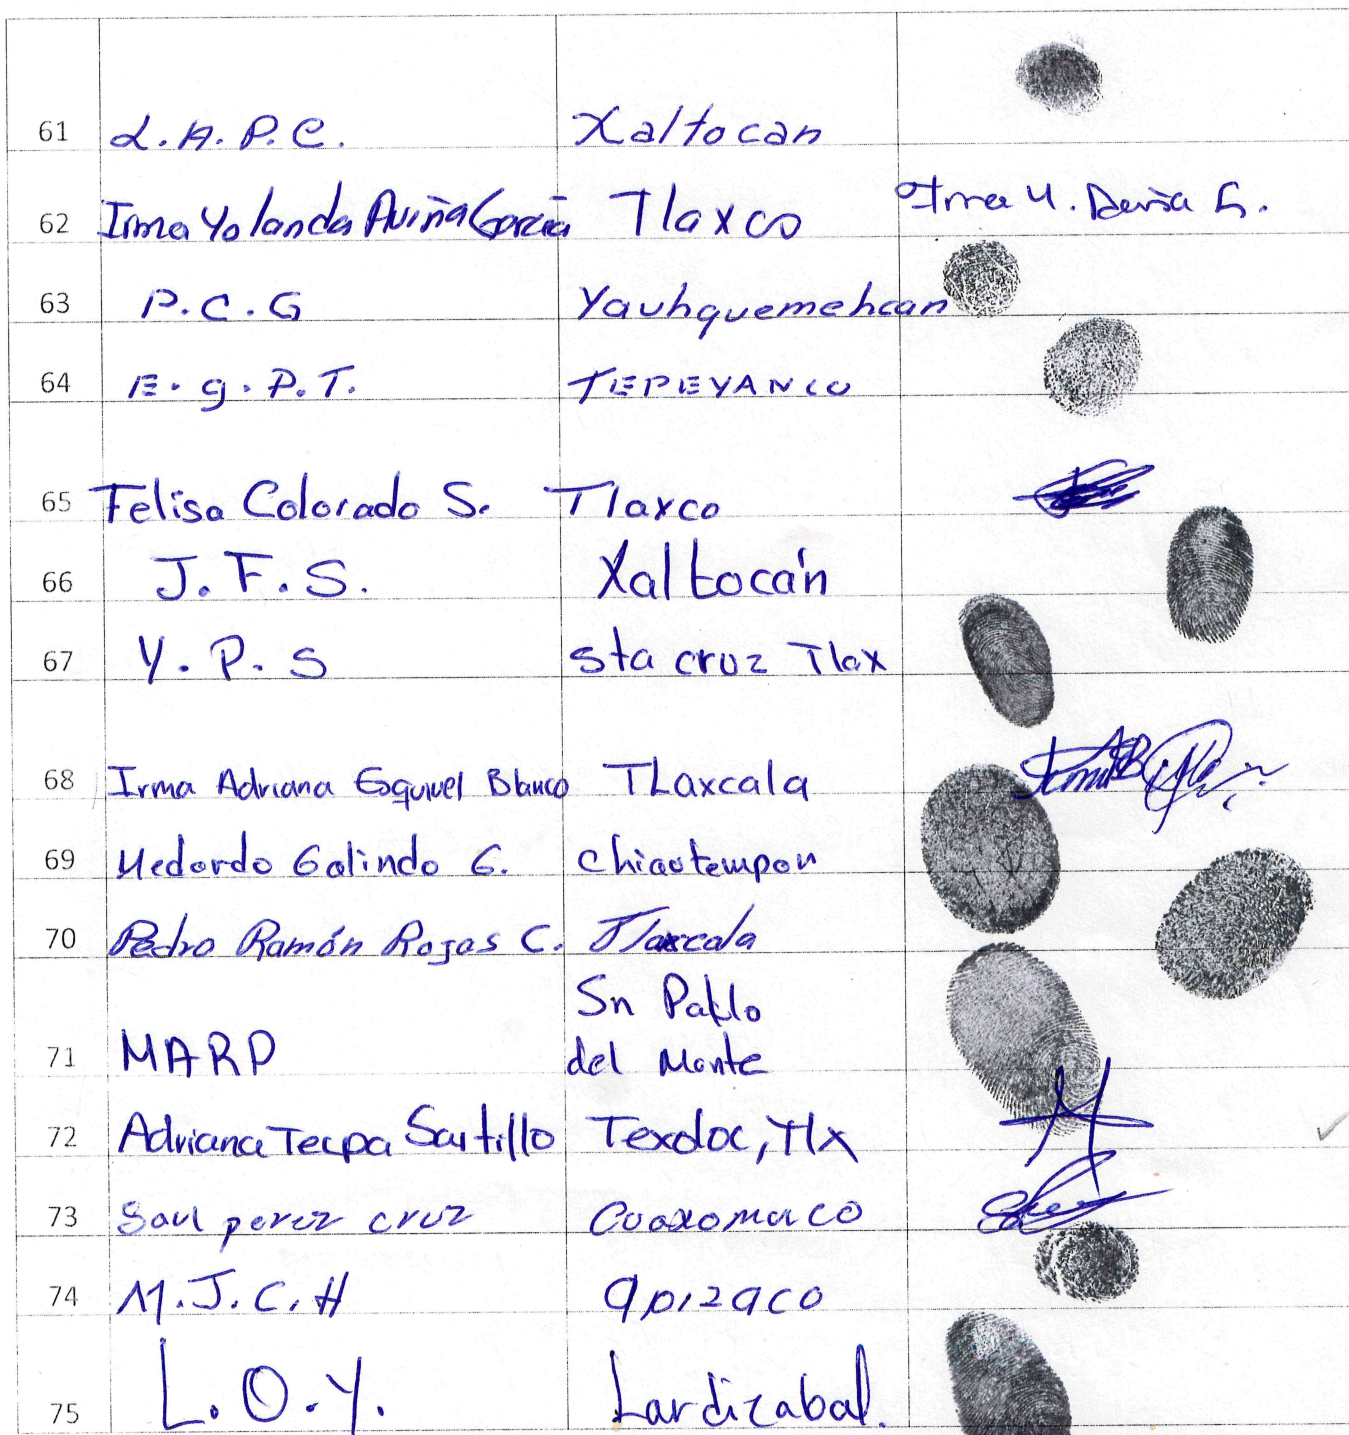 61 L.A.P.C. Xaltocan
62 Irma Yolanda Aviña García Tlaxco Irma Y. Aviña G.
63 P.C.G Yauhquemehcan
64 E.g.P.T. TEPEYANCO
65 Felisa Colorado S. Tlaxco
66 J.F.S. Xaltocán
67 Y.P.S Sta cruz Tlax
68 Irma Adriana Esquivel Blanco TLaxcala
69 Medardo Galindo G. Chiautempan
70 Pedro Ramón Rojas C. Tlaxcala
Sn Pablo
71 MARP del Monte
72 Adriana Tecpa Santillo Texoloc, Tlx
73 Saul perez cruz Cuaxomulco
74 M.J.C.H apizaco
75 L.O.Y. Lardizabal.